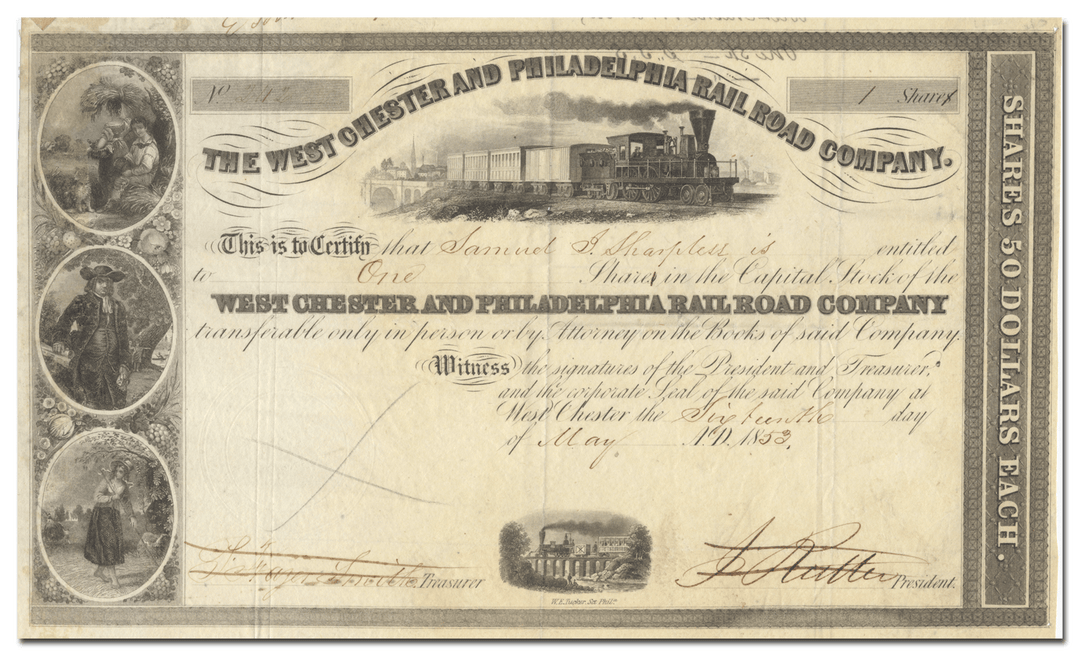 No
THE WEST CHESTER AND PHILADELPHIA RAIL ROAD COMPANY.
1 Share
SHARES 50 DOLLARS EACH.
This is to Certify that Samuel J. Sharpless is entitled
to One Share in the Capital Stock of the
WEST CHESTER AND PHILADELPHIA RAIL ROAD COMPANY
transferable only in person or by Attorney on the Books of said Company.
Witness the signatures of the President and Treasurer,
and the corporate Seal of the said Company at
West Chester the Sixteenth day
of May A.D. 1853.
Treasurer
J. Rutter President.
W.E. Tucker. Sc. Phila.